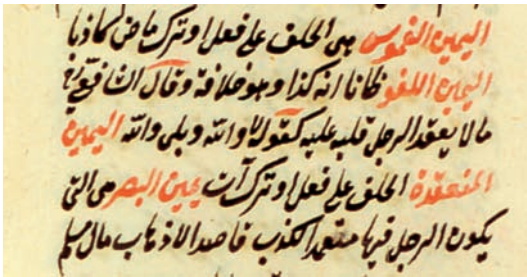 اليمين الغموس هى الحلف على فعل او ترك ماض كاذبا
اليمين اللغو ظانا انه كذا وهو خلافه وقال الشافعى رح
مالا يعقد الرجل قلبه عليه كقوله لا والله وبلى والله اليمين
المنعقدة الحلف على فعل او ترك آت يمين الصبر هى التى
يكون الرجل فيها متعمد الكذب قاصدا لاذهاب مال مسلم